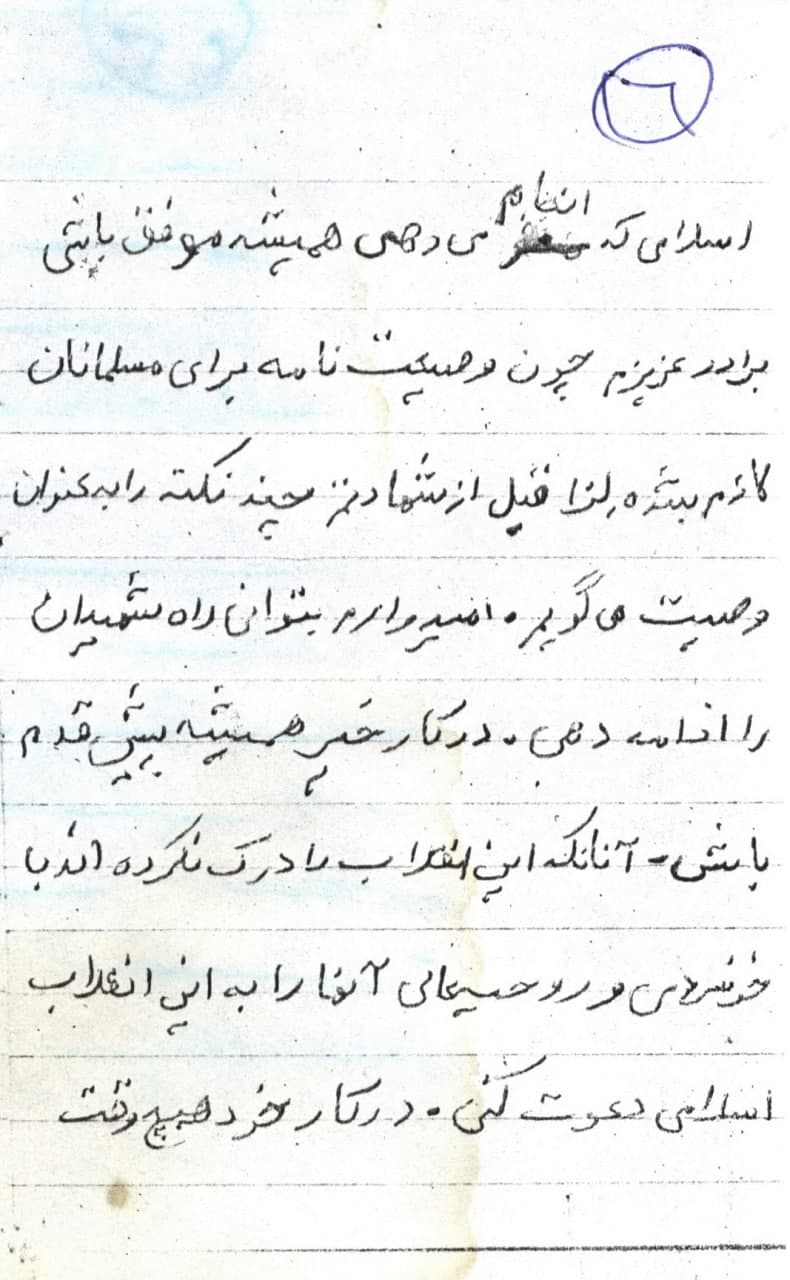 ۶
انجام
اسلامی که می دهی همیشه موفق باشی
برادر عزیزم چون وصیت نامه برای مسلمانان
لازم بشده لذا قبل از شهادتم چند نکته را به عنوان
وصیت می گویم . امیدوارم بتوانی راه شهیدان
را ادامه دهی . در کار خیر همیشه پیش قدم
باش - آنانکه این انقلاب را درک نکرده اند با
خونسردی و رو آنها را به این انقلاب
اسلامی دعوت کنی . در کار خود هیچ وقت